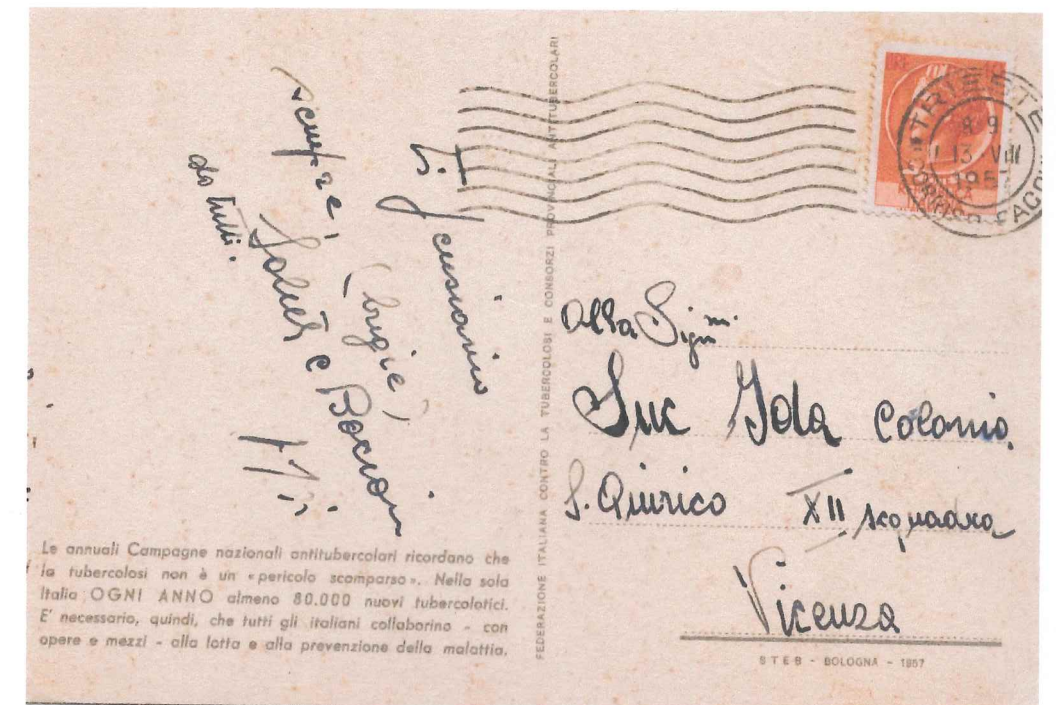 Ti pensiamo
sempre,
Saluti e Bacioni
da tutti.
Le annuali Campagne nazionali antitubercolari ricordano che
la tubercolosi non è un «pericolo scomparso». Nella sola
Italia OGNI ANNO almeno 80.000 nuovi tubercolotici.
E' necessario, quindi, che tutti gli italiani collaborino - con
opere e mezzi - alla lotta e alla prevenzione della malattia.
FEDERAZIONE ITALIANA CONTRO LA TUBERCOLOSI E CONSORZI PROVINCIALI ANTITUBERCOLARI
TRIESTE
8-9
13 VIII
Alla Sign
Suc Ida Colonia
S. Quirico XII squadra
Vicenza
STEB - BOLOGNA - 1957